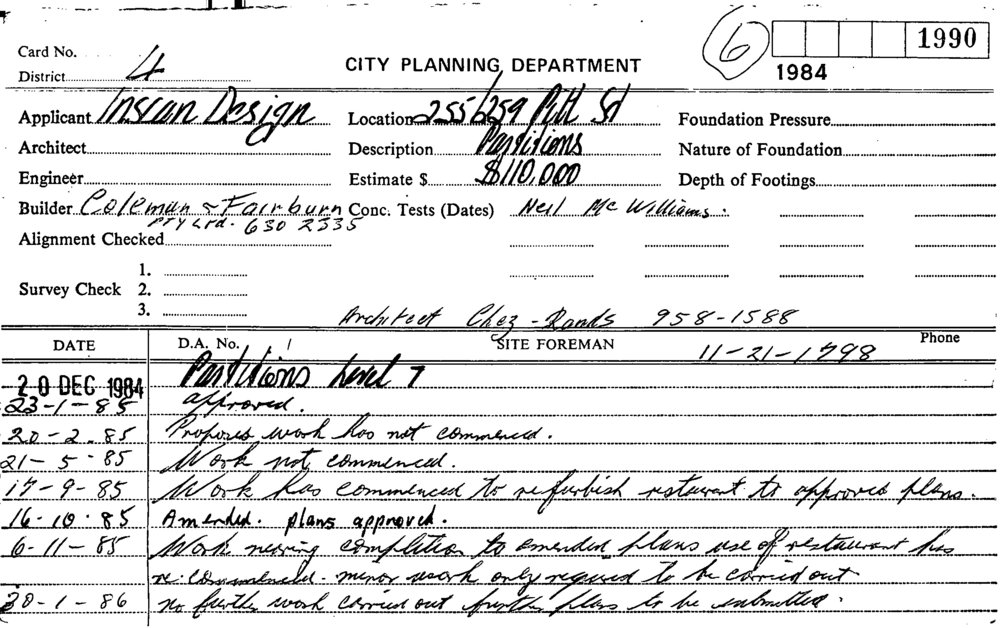 6 1990
Card No.
District 4 CITY PLANNING DEPARTMENT 1984
Applicant Inscan Design Location 255/259 Pitt St Foundation Pressure
Architect Description Partitions Nature of Foundation
Engineer Estimate $ $110,000 Depth of Footings
Builder Coleman & Fairburn Conc. Tests (Dates) Neil McWilliams.
PTY Ltd. 630 2335
Alignment Checked
1.
Survey Check 2.
3.
Architect Chez-Rands 958-1588
DATE D.A. No. SITE FOREMAN 11-21-1798 Phone
20 DEC 1984 Partitions Level 7
23-1-85 approved.
20-2-85 Proposed work has not commenced.
21-5-85 Work not commenced.
17-9-85 Work has commenced to refurbish restaurant to approved plans.
16-10-85 Amended. plans approved.
6-11-85 Work nearing completion to amended plans use of restaurant has
re-commenced - minor work only required to be carried out
30-1-86 no further work carried out further plans to be submitted.